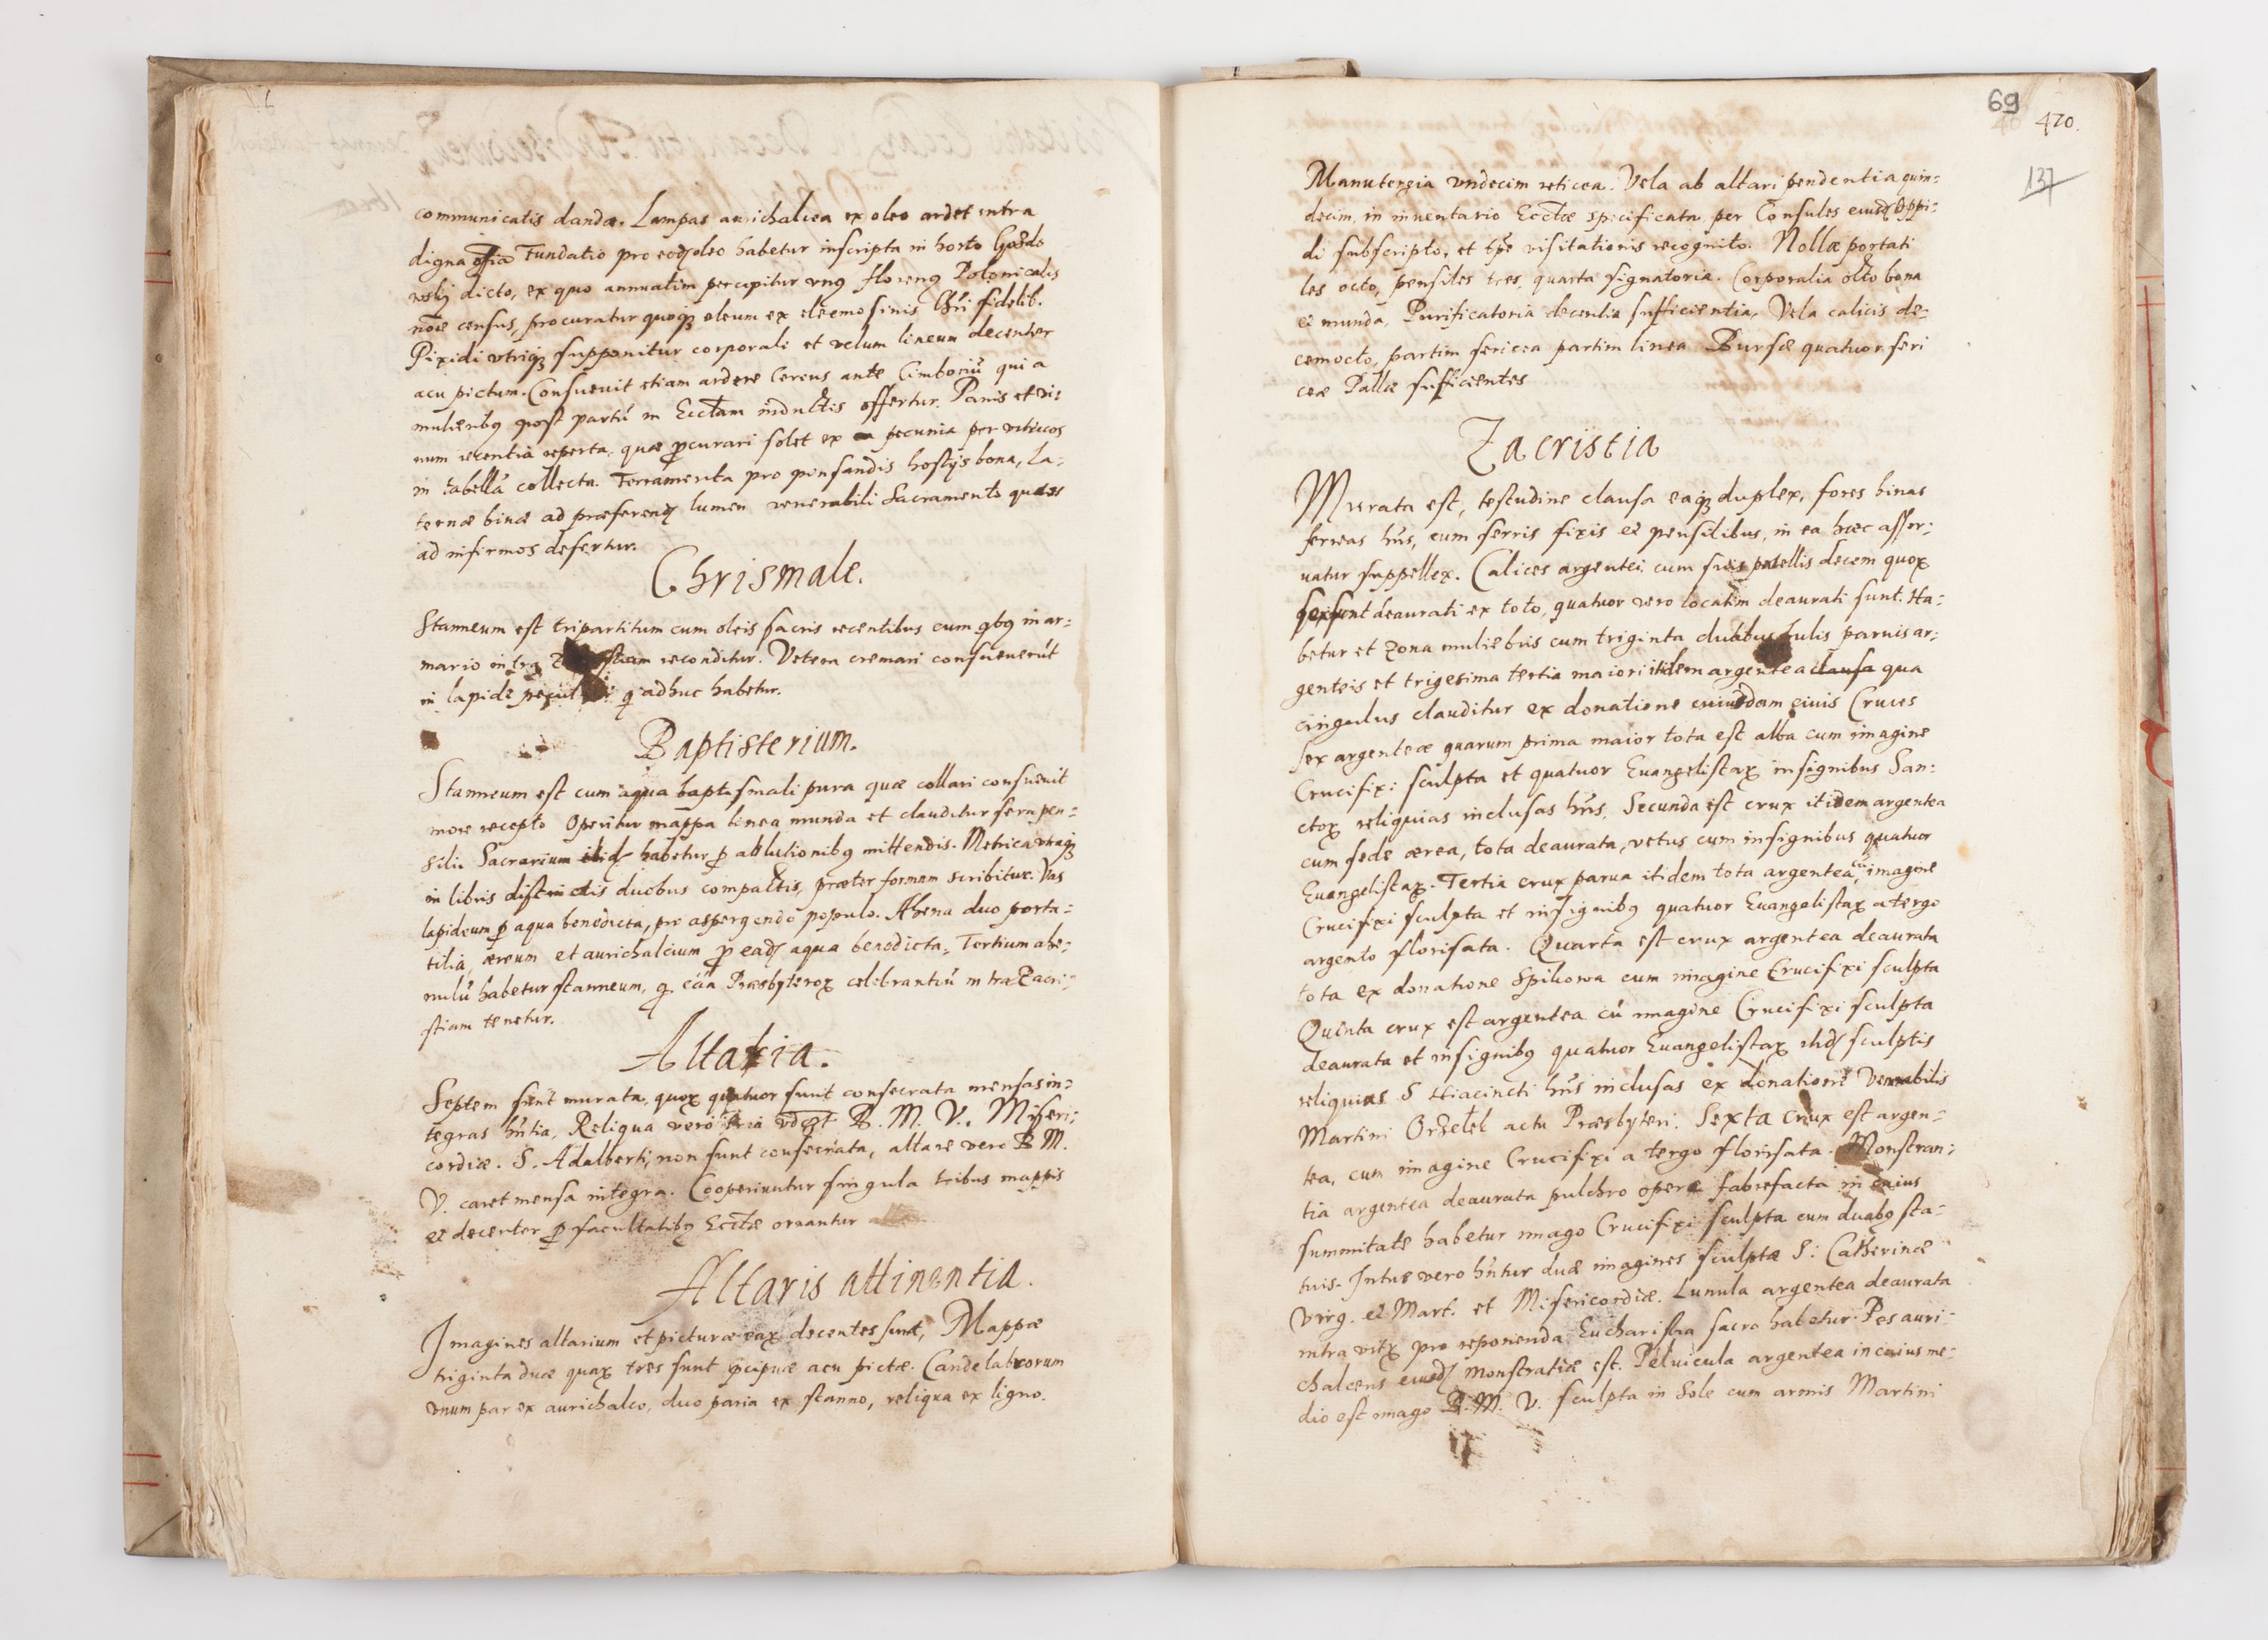 communicatis dandæ. Lampas aurichalcea ex oleo ardet intra
digna Fundatio pro eodem oleo habetur inscripta in horto
dicto, ex quo annuatim percipitur vnus florenus Polonicalis
nõie census, procuratur quoq; oleum ex eleemosinis Chri fidelib.
Pixidi vtriq; supponitur corporale et velum lineum decenter
acu pictum. Consueuit etiam ardere Cereus ante Cimboriũ qui a
mulieribus post partũ in Eccłam indultis offertur. Panis et vi:
num recentia reperta, quæ procurari solet ex pecunia per vitricos
in tabellã collecta. Ferramenta pro pinsandis hostijs bona, La:
ternæ binæ ad præferend lumen venerabili Sacramento quæ
ad infirmos defertur.
Chrismale.
Stanneum est tripartitum cum oleis sacris recentibus cum qbus in ar:
mario intra reconditur. Vetera cremari consueuerũt
in lapide q adhuc habetur.
Baptisterium.
Stanneum est cum aqua baptismali pura quæ collari consueuit
more recepto Operitur mappa linea munda et clauditur sera pen:
sili. Sacrarium ibid habetur p ablutionibus mittendis. Metrica vtraq;
in libris districtis duobus compactis, præter formam scribitur. Vas
lapideum p aqua benedicta, pro aspergendo populo. Ahena duo porta:
tilia, æreum et aurichalcium p eadem aqua benedicta. Tertium ahe:
nulũ habetur stanneum, q cãa Præsbyteror celebrantiũ intra Zacri:
stiam tenetur.
Altaria.
Septem sunt murata, quor quatuor sunt consecrata mensas in:
tegras hñtia, Reliqua vero tria vdelt B. M. V., Miseri:
cordiæ. S. Adalberti, non sunt consecrata, altare vero B M.
V. caret mensa integra. Cooperiuntur singula tribus mappis
et decenter p facultatibus Eccłæ ornantur
Altaris attinentia.
Imagines altarium et picturæ ear decentes sunt, Mappæ
triginta duæ quar tres sunt pcipuæ acu pictæ. Candelabrorum
vnum par ex aurichalco, duo paria ex stanno, reliqua ex ligno.
69
470.
137
Manutergia vndecim reticea. Vela ab altari pendentia quin:
decim, in inuentario Eccłæ specificata per Consules eiusd Oppi:
di subscripto, et tpe visitationis recognito. Nollæ portati
les octo, pensiles tres, quarta signatoria. Corporalia octo bona
et munda, Purificatoria decentia sufficientia, Vela calicis de:
cemocto, partim sericea partim linea Bursæ quatuor seri
ceæ Pallæ sufficientes
Zacristia
Murata est, testudine clausa eaq; duplex, fores binas
ferreas hñs, cum serris fixis et pensilibus, in ea hæc asser:
uatur suppellex. Calices argentei cum suis patellis decem quor
sex sunt deaurati ex toto, quatuor vero locatim deaurati sunt. Ha:
betur et Zona muliebris cum triginta duabus bulis paruis ar:
genteis et trigesima tertia maiori itidem argentea clausa qua
cingulus clauditur ex donatione cuiusdam ciuis Cruces
sex argenteæ quarum prima maior tota est alba cum imagine
Crucifixi sculpta et quatuor Euangelistar insignibus San:
ctor reliquias inclusas hñs. Secunda est crux itidem argentea
cum sede ærea, tota deaurata, vetus cum insignibus quatuor
Euangelistar. Tertia crux parua itidem tota argentea, cũ imagine
Crucifixi sculpta et insignibus quatuor Euangelistar a tergo
argento florisata. Quarta est crux argentea deaurata
tota ex donatione cum imagine Crucifixi sculpta
Quinta crux est argentea cũ imagine Crucifixi sculpta
deaurata et insignibus quatuor Euangelistar ibid sculptis
reliquias S Hiacincti hñs inclusas ex donatione Venerabilis
Martini actu Præsbyteri. Sexta crux est argen:
tea, cum imagine Crucifixi a tergo florisata. Monstran:
tia argentea deaurata pulchro opere fabrefacta in cuius
summitate habetur imago Crucifixi sculpta cum duabus sta:
tuis. Intus vero hñtur duæ imagines sculptæ S: Catherinæ
Virg. et Mart. et Misericordiæ. Lunula argentea deaurata
intra vitr pro reponenda Eucharistia sacra habetur. Pes auri:
chalceus eiusd monstratiæ est. Peluicula argentea in cuius me:
dio est imago B. M. V. sculpta in Sole cum armis Martini